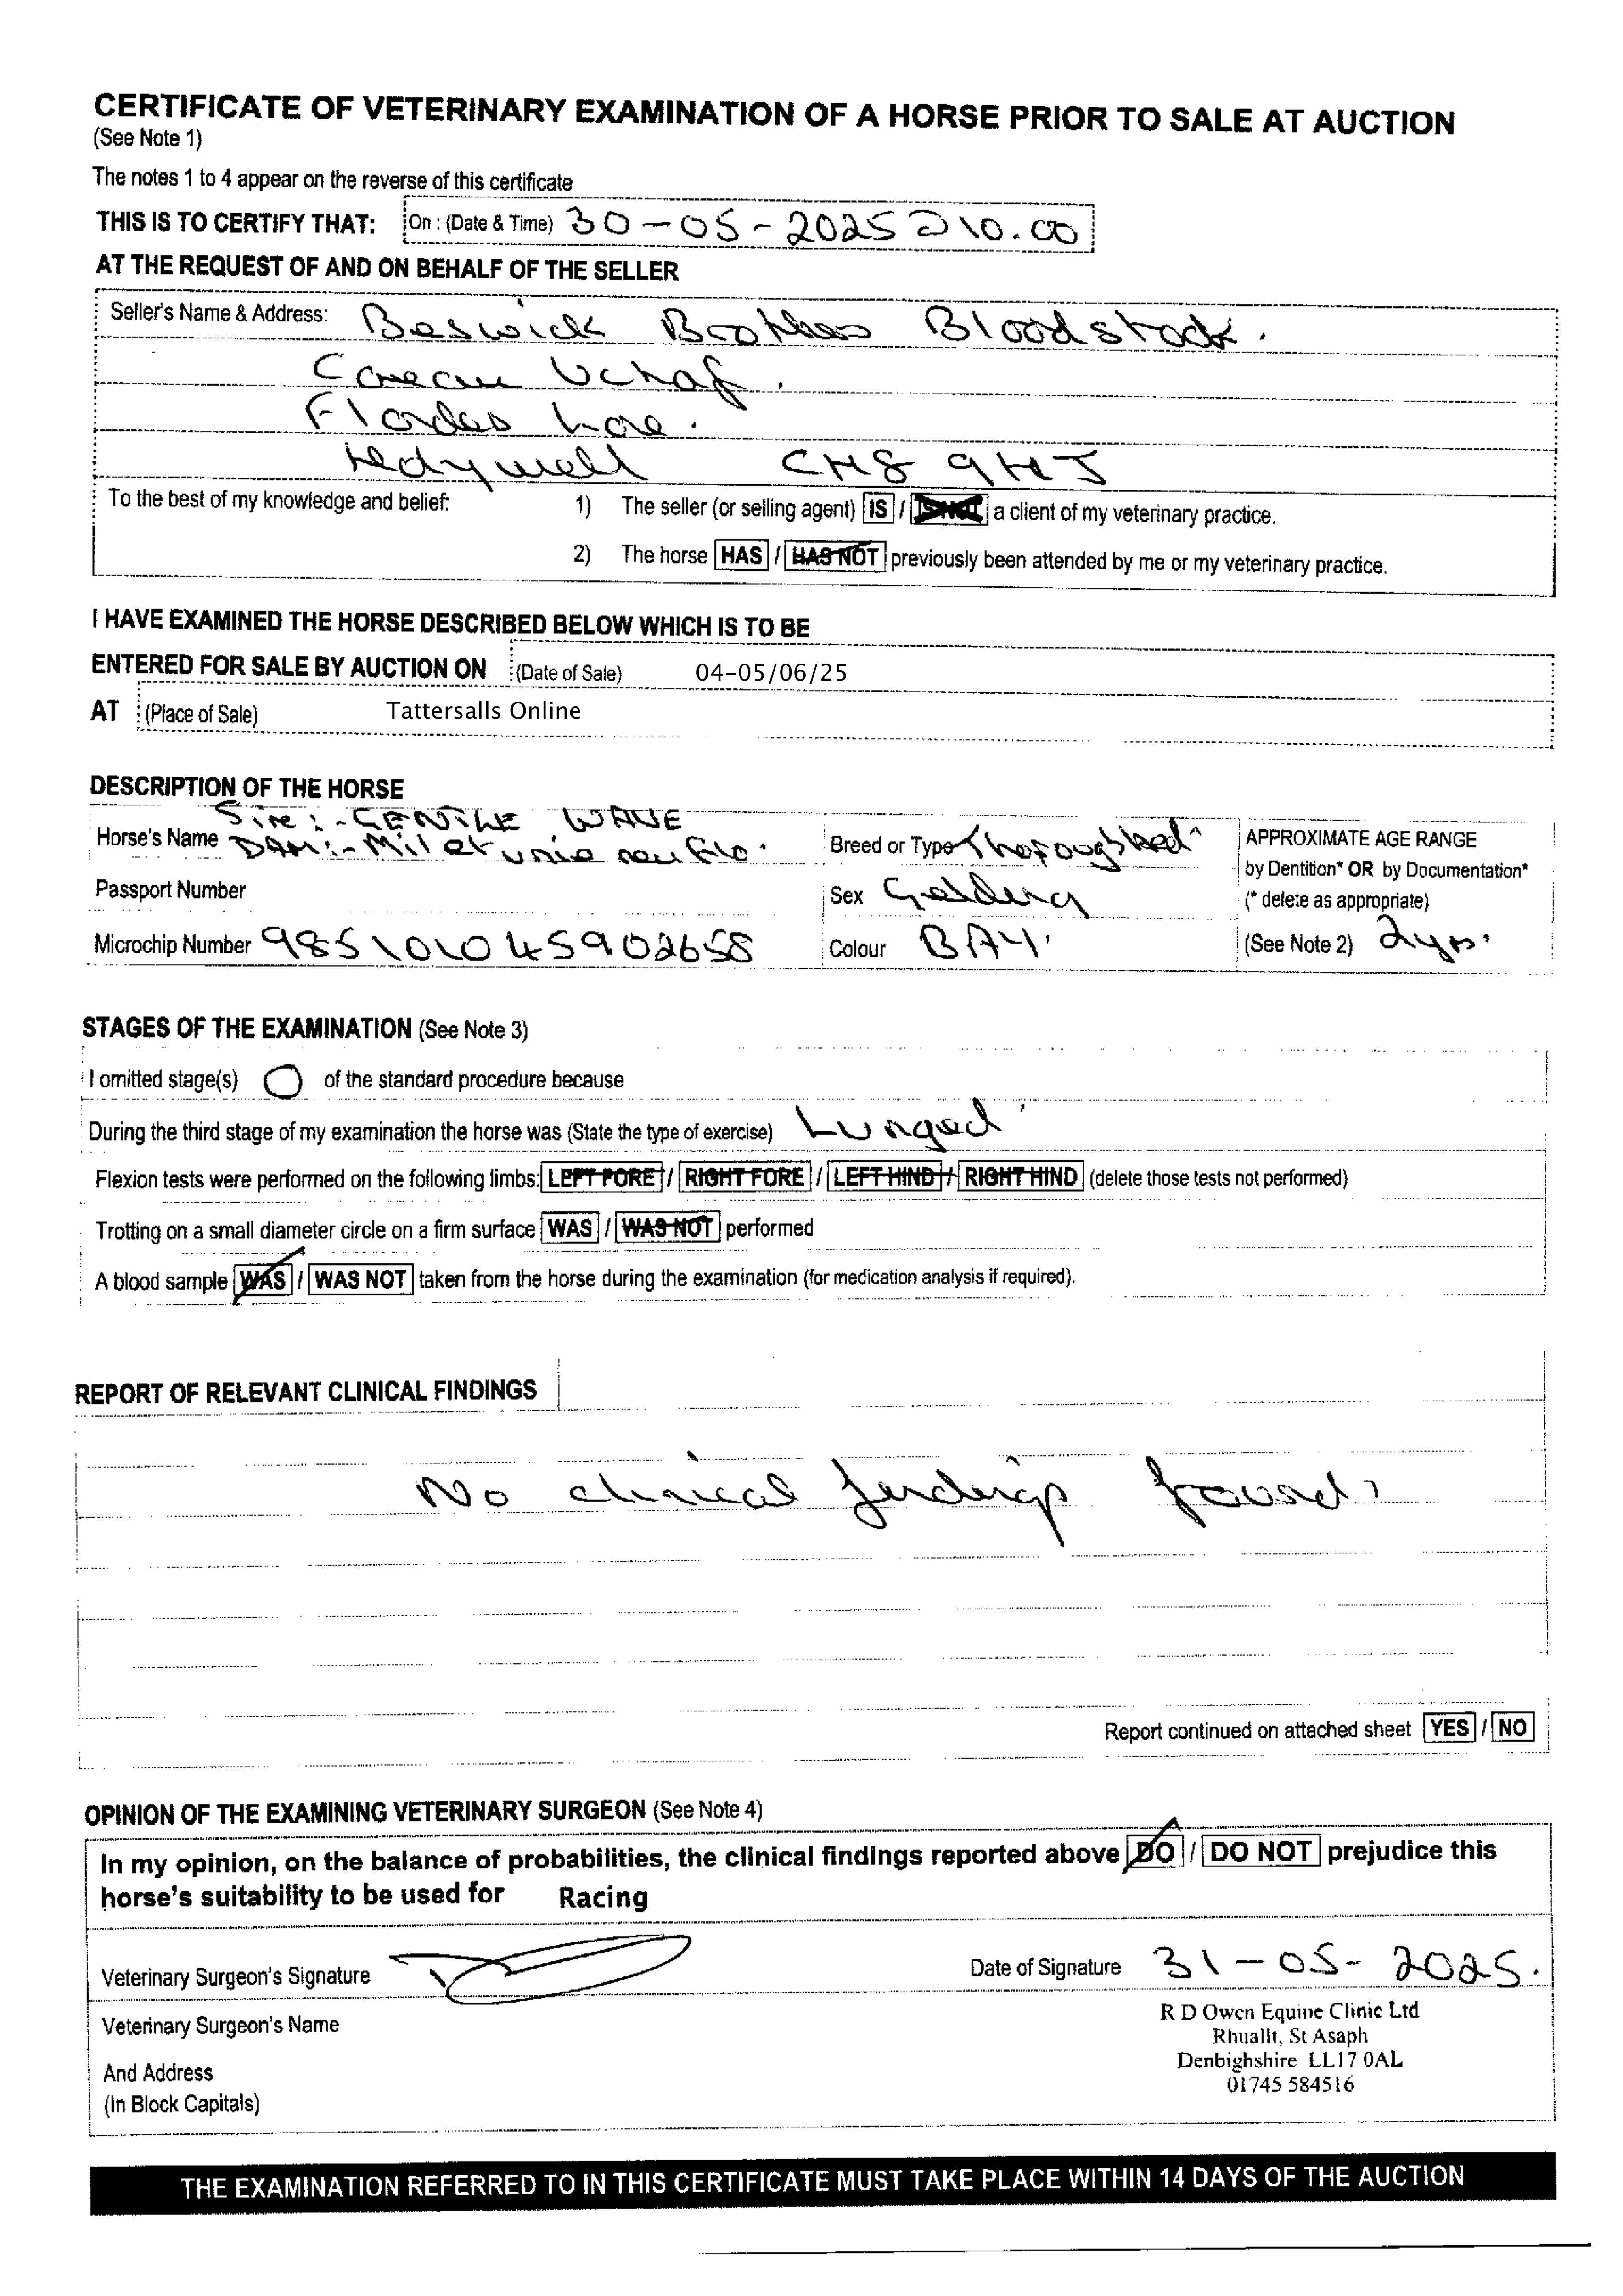 CERTIFICATE OF VETERINARY EXAMINATION OF A HORSE PRIOR TO SALE AT AUCTION
(See Note 1)
The notes 1 to 4 appear on the reverse of this certificate
THIS IS TO CERTIFY THAT: On : (Date & Time) 30-05-2025 @ 10.00
AT THE REQUEST OF AND ON BEHALF OF THE SELLER
Seller's Name & Address: Beswick Brothers Bloodstock.
Uchaf.
Lane.
CH8 9HJ
To the best of my knowledge and belief: 1) The seller (or selling agent) IS / IS NOT a client of my veterinary practice.
2) The horse HAS / HAS NOT previously been attended by me or my veterinary practice.
I HAVE EXAMINED THE HORSE DESCRIBED BELOW WHICH IS TO BE
ENTERED FOR SALE BY AUCTION ON (Date of Sale) 04-05/06/25
AT (Place of Sale) Tattersalls Online
DESCRIPTION OF THE HORSE
Sire:- GENTLE WAVE
Horse's Name DAM:- Mil et Breed or Type Thoroughbred APPROXIMATE AGE RANGE
by Dentition* OR by Documentation*
Passport Number Sex Gelding (* delete as appropriate)
Microchip Number 985101045902658 Colour BAY. (See Note 2) 2yrs.
STAGES OF THE EXAMINATION (See Note 3)
I omitted stage(s) O of the standard procedure because
During the third stage of my examination the horse was (State the type of exercise) Lunged
Flexion tests were performed on the following limbs: LEFT FORE / RIGHT FORE / LEFT HIND / RIGHT HIND (delete those tests not performed)
Trotting on a small diameter circle on a firm surface WAS / WAS NOT performed
A blood sample WAS / WAS NOT taken from the horse during the examination (for medication analysis if required).
REPORT OF RELEVANT CLINICAL FINDINGS
No clinical findings found.
Report continued on attached sheet YES / NO
OPINION OF THE EXAMINING VETERINARY SURGEON (See Note 4)
In my opinion, on the balance of probabilities, the clinical findings reported above DO / DO NOT prejudice this
horse's suitability to be used for Racing
Veterinary Surgeon's Signature Date of Signature 31-05-2025.
Veterinary Surgeon's Name R D Owen Equine Clinic Ltd
Rhuallt, St Asaph
And Address Denbighshire LL17 0AL
(In Block Capitals) 01745 584516
THE EXAMINATION REFERRED TO IN THIS CERTIFICATE MUST TAKE PLACE WITHIN 14 DAYS OF THE AUCTION